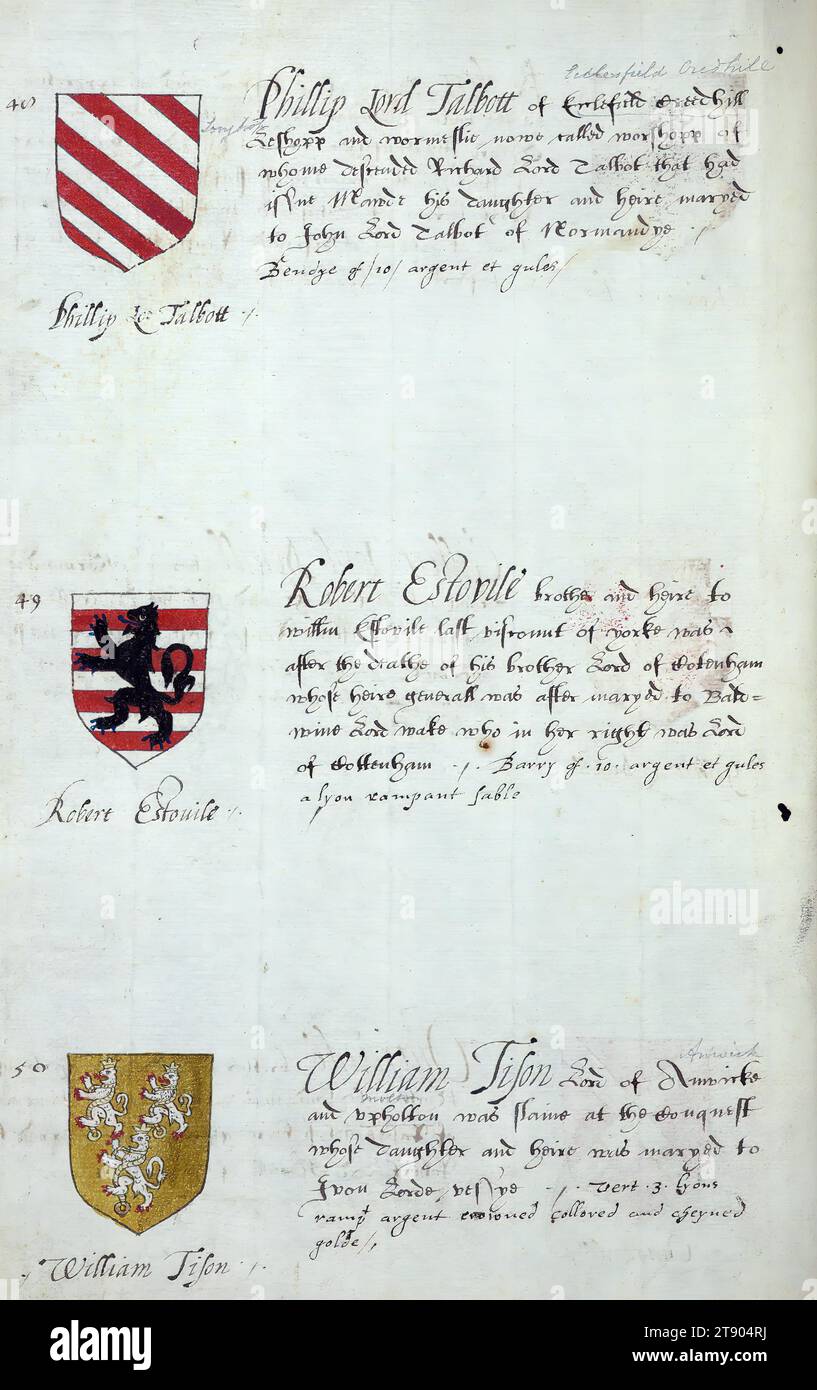 Ecclesfield Credhill
48
Phillip Lord Talbott of Ecclefeild Creedhill
Longhope
Leshopp and wormeslie, nowe called worshopp of
whome descended Richard Lord Talbot that had
issue Mawde his daughter and heire, maryed
to John Lord Talbot of Normandye
Bendye of /10/ argent et gules/
Phillip Lo: Talbott
49
Robert Estovile brother and heire to
willm Estovile last viscount of yorke was
after the deathe of his brother Lord of Cotenham
whose heire generall was after maryed to Bald=
wine Lord wake who in her right was Lord
of Cottenham Barry of .10. argent et gules
a lyon rampant sable
Robert Estouile
Anwick
50
William Tison Lord of Anwicke
and vpholton was slaine at the Conquest
whose daughter and heire was maryed to
Ivon Lorde vessye vert .3. lyons
rampt argent crowned collored and cheyned
golde/
William Tison
alamy
alamy
alamy
alamy
Image ID: 2T904RJ
www.alamy.com